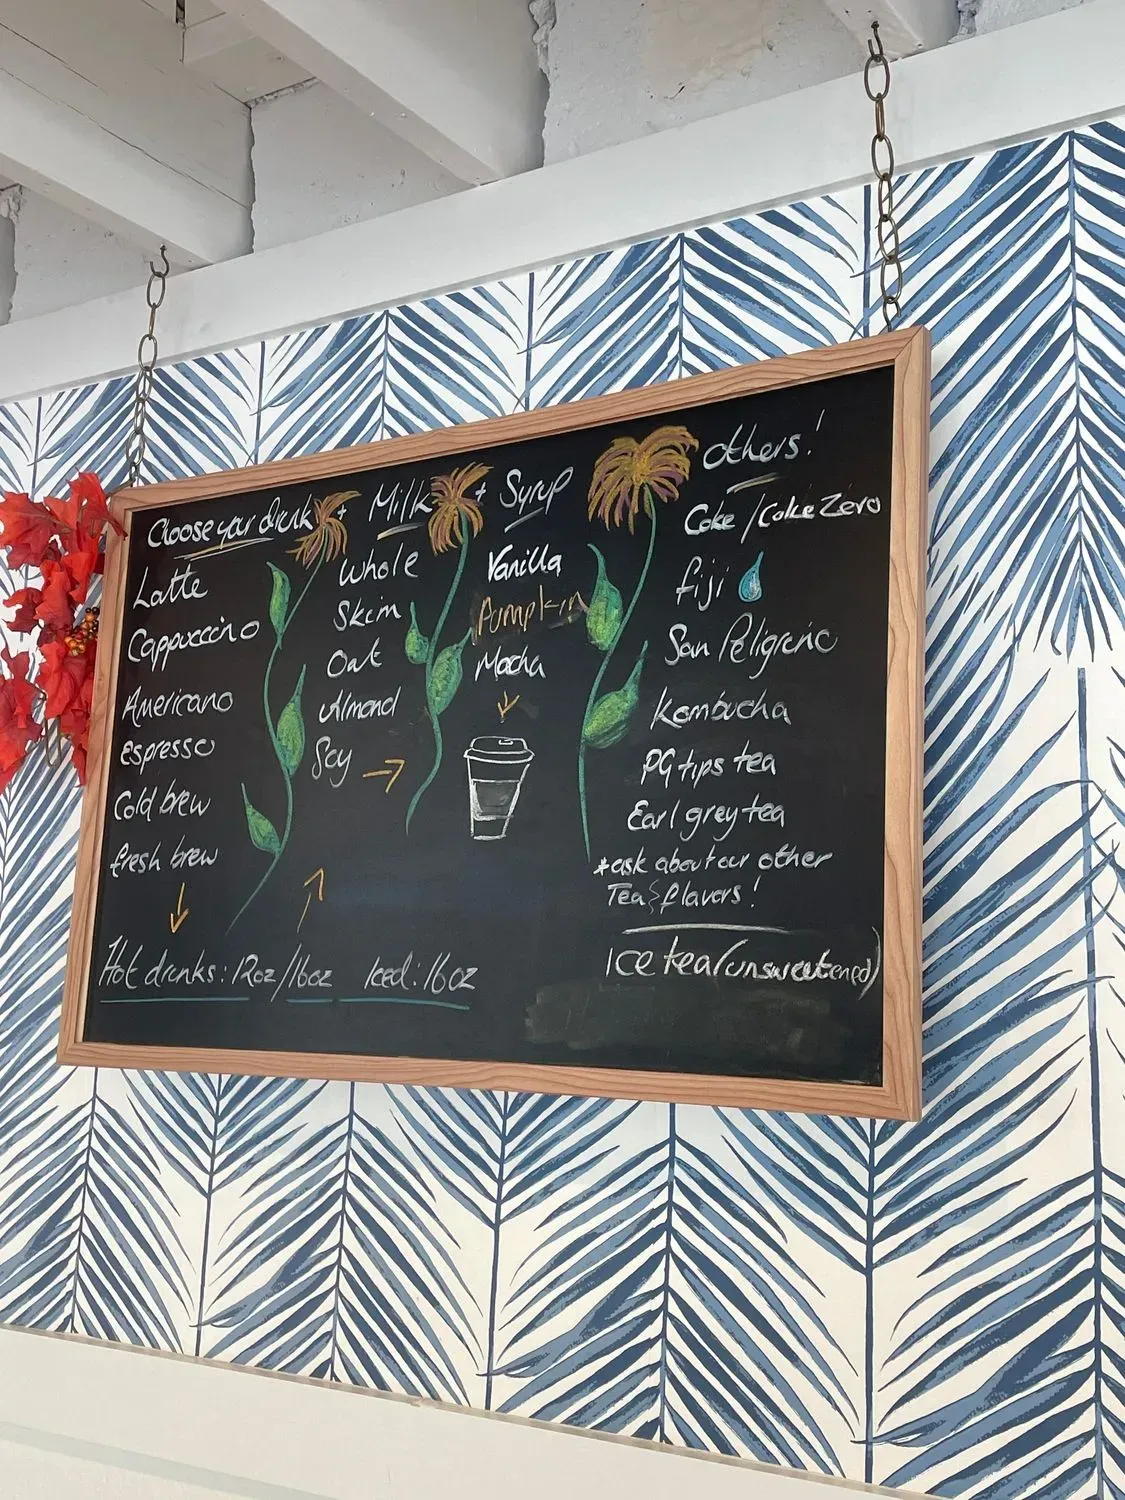 Choose your drink + Milk + Syrup
Latte
Cappuccino
Americano
Espresso
Cold brew
fresh brew
Whole
Skim
Oat
Almond
Soy
Vanilla
Pumpkin
Mocha
Hot drinks: 12oz/16oz Iced: 16oz
Others!
Coke / Coke Zero
fiji
San Peligrino
Kombucha
PG tips tea
Earl grey tea
*ask about our other
Tea & flavors!
Ice tea (unsweetened)